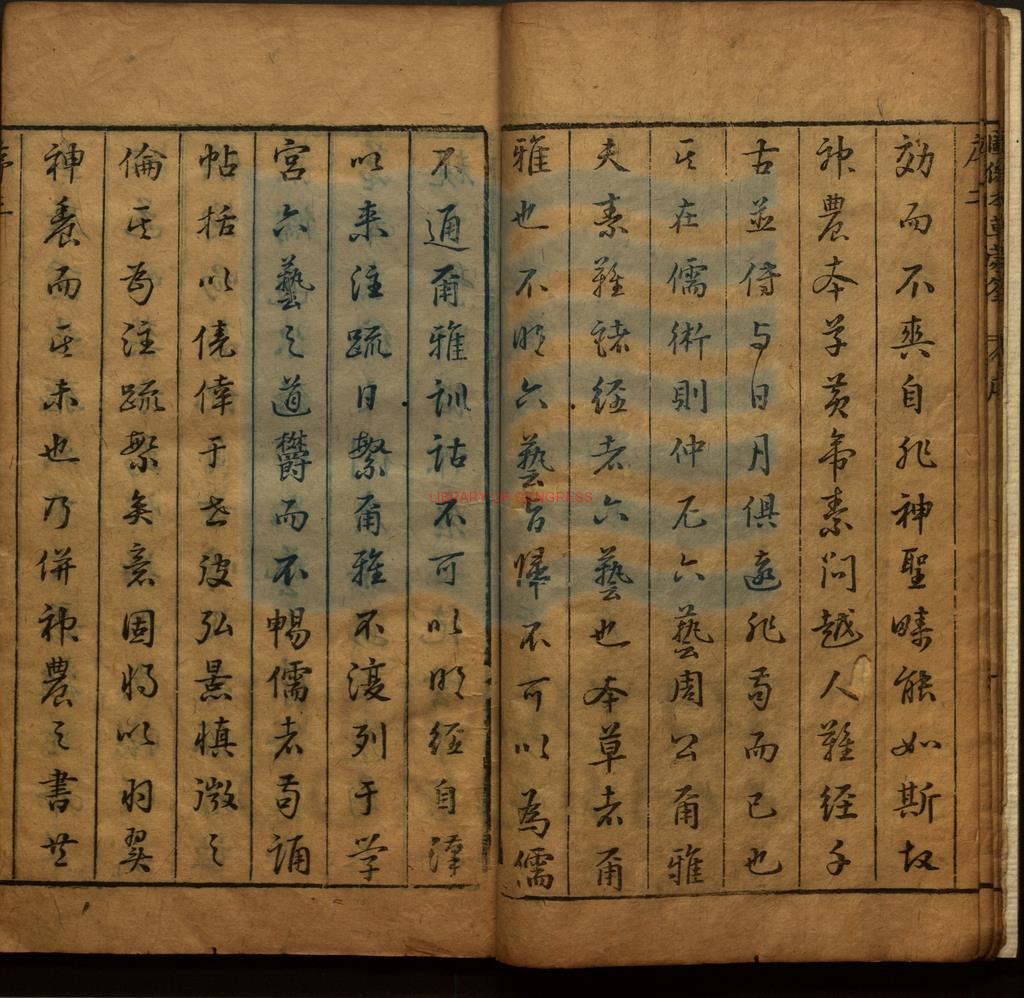 効而不爽自非神聖疇能如斯故
神農本学黄帝素问越人難経千
古並侍与日月俱遠非苟而已也
其在儒術則仲尼六藝周公爾雅
夫素難諸経者六藝也本草者爾
雅也不明六藝旨帰不可以為儒
不通爾雅訓詁不可以明経自漢
以来注疏日繁爾雅不復列于学
宮六藝之道欝而不暢儒者苟誦
帖括以侥倖于世彼弘景慎微之
倫其为注疏繁矣意固将以羽翼
神農而其未也乃併神農之書共
序二
LIBRARY OF CONGRESS